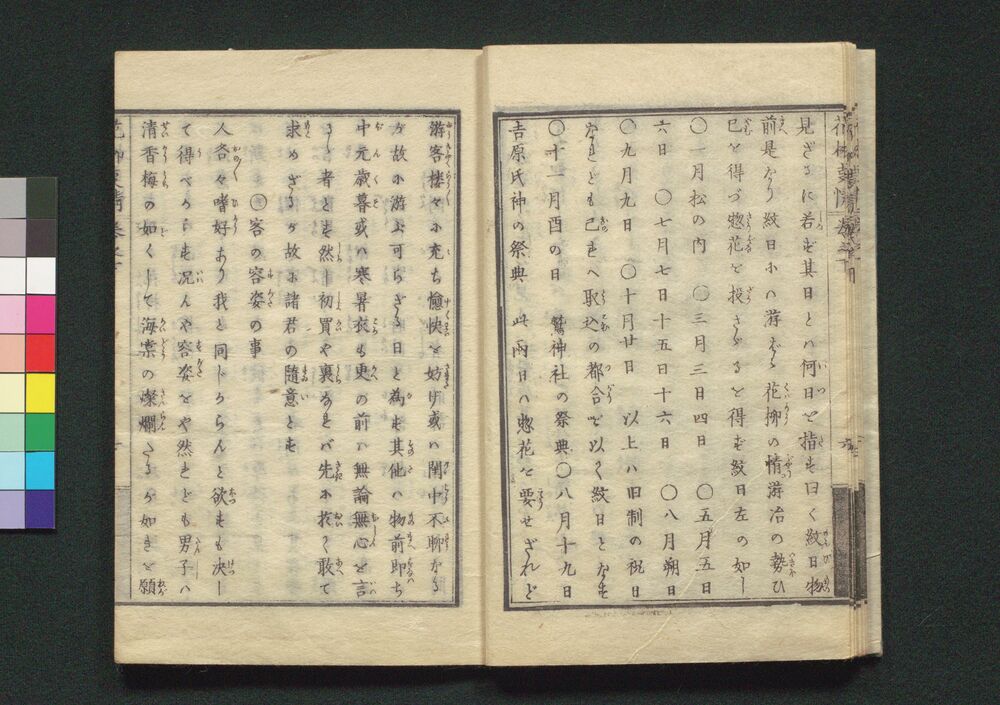 見ざるに若ず其日とハ何日を指す曰く紋日物
前是なり紋日にハ游ばゞ花柳の情游冶の勢ひ
已を得づ惣花を投ざるを得ず紋日左の如し
〇一月松の内 〇三月三日四日 〇五月五日
六日 〇七月七日十五日十六日 〇八月朔日
〇九月九日 〇十月廿日 以上ハ旧制の祝日
なれども己まへ取込の都合を以て紋日となす
〇十一月酉の日 鷲神社の祭典〇八月十九日
吉原氏神の祭典 此両日ハ惣花を要せざれど
游客楼々に充ち愉快を妨げ或ハ閨中不聊なる
が故に游ぶ可らざる日と為す其他ハ物前即ち
中元歳暮或ハ寒暑衣も更の前ハ無論無心を言
るゝ者とす然し初買や裏なれバ先に於て敢て
求めざるが故に諸君の随意とす
〇客の容姿の事
人各々嗜好あり我と同トからんと欲すも决し
て得べからず况んや容姿をや然れども男子ハ
清香梅の如くして海棠の燦爛たるが如きを願